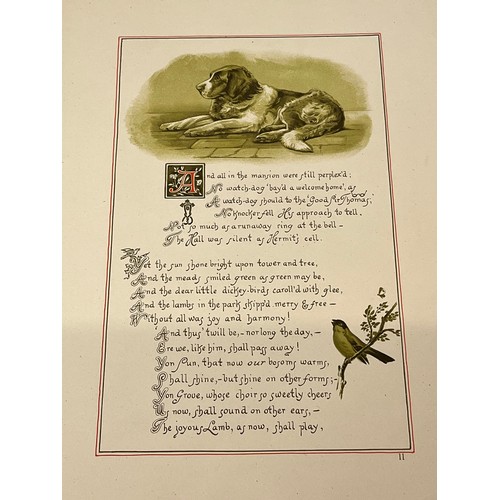 And all in the mansion were still perplex'd;
No watch-dog 'bay'd a welcome home', as
A watch-dog should to the 'Good Sir Thomas;'
No knocker fell His approach to tell,
Not so much as a runaway ring at the bell –
The Hall was silent as Hermit's cell.
Yet the sun shone bright upon tower and tree,
And the meads smiled green as green may be,
And the dear little dickey-birds caroll'd with glee,
And the lambs in the park skipp'd merry & free –
Without all was joy and harmony!
And thus 'twill be, – nor long the day, –
Ere we, like him, shall pass away!
Yon Sun, that now our bosoms warms,
Shall shine, – but shine on other forms; –
Yon Grove, whose choir so sweetly cheers
Us now, shall sound on other ears, –
The joyous Lamb, as now, shall play,
11